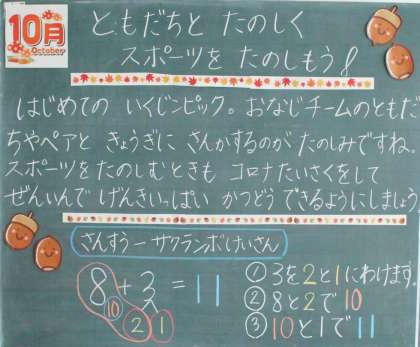 10月
October
ともだちと たのしく
スポーツを たのしもう!
はじめての いくじンピック。おなじチームのともだ
ちやペアと きょうぎに さんかするのが たのしみですね。
スポーツをたのしむときも コロナたいさくをして
ぜんいんで げんきいっぱい かつどう できるようにしましょう。
さんすう－サクランボけいさん
8+3=11
10
2 1
① 3を2と1にわけます。
② 8と2で10
③ 10と1で11